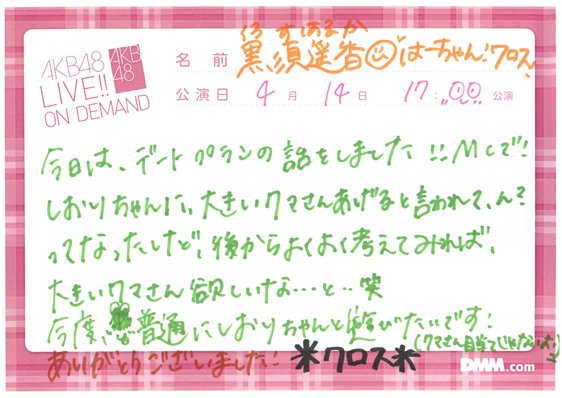 AKB48
LIVE!!
ON DEMAND
AKB
48
くろ すはるか
名前 黒須遥香 はーちゃん!クロス!
公演日 4月 14日 17:00 公演
今日は、デートプランの話をしました!!MCで!
しおりちゃんに、大きいクマさんあげると言われて、ん?
ってなったけど!後からよくよく考えてみれば、
大きいクマさん欲しいな…と..笑
今度は普通にしおりちゃんと遊びたいです!
(クマさん目当てじゃないよ!)
ありがとうございました! *クロス*
DMM.com